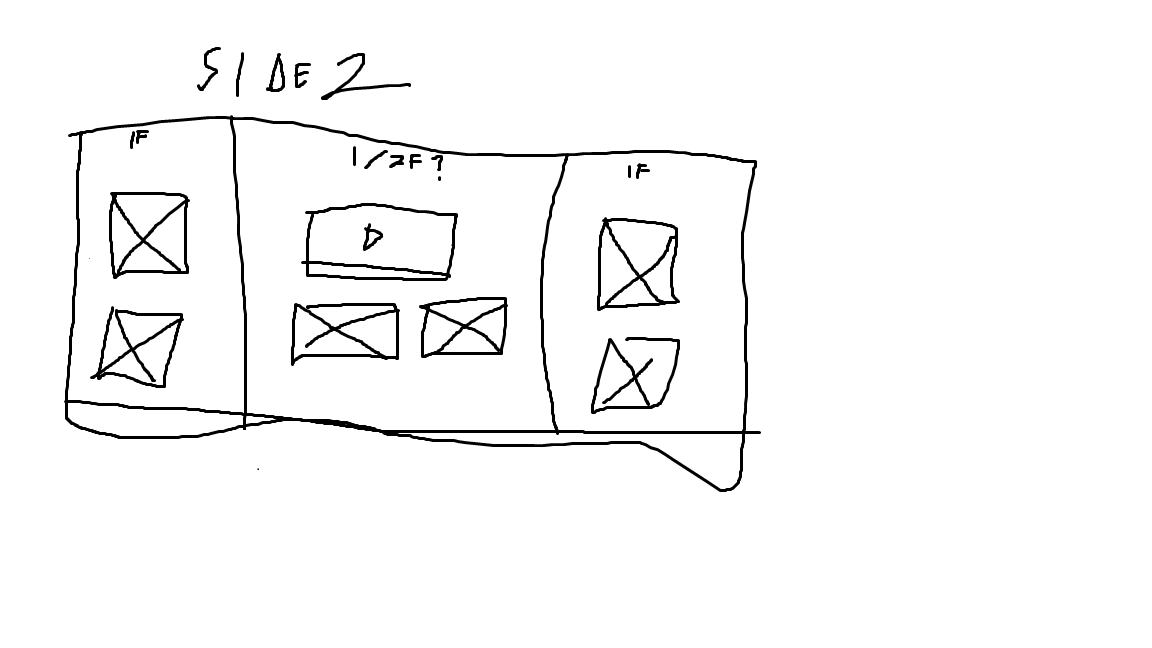 SIDE 2
1F
1/2F?
1F